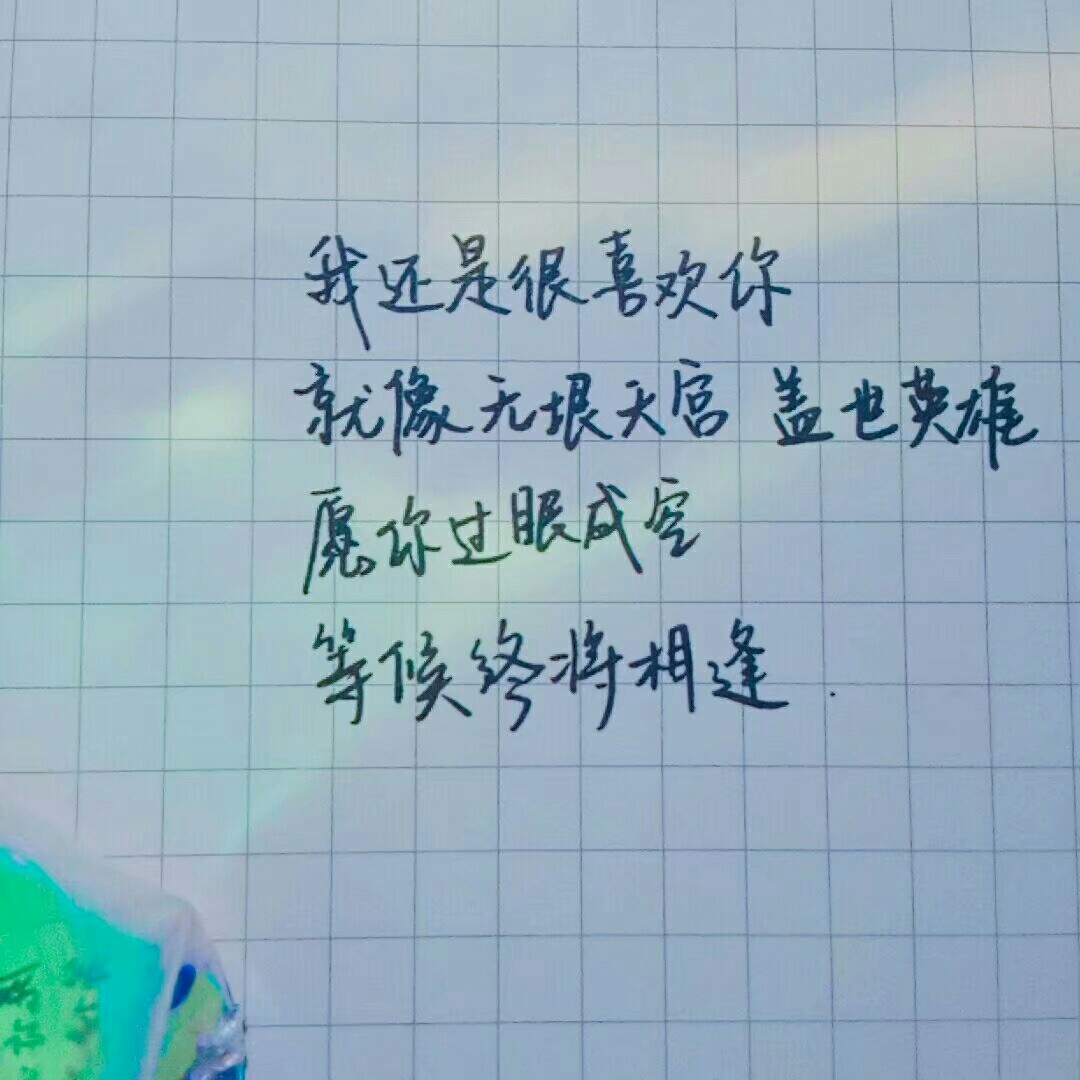 我还是很喜欢你
就像无垠天宫 盖也英雄
愿你过眼成空
等候终将相逢.